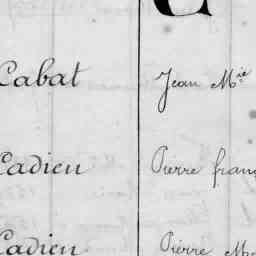 C
Cabat Jean Mie
Cadieu Pierre franç
Cadieu Pierre M